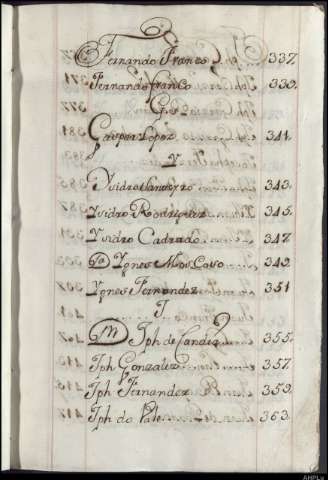 Fernando Franco 337.
Fernando franco 339.
G.
Gaspar Lopez 341.
Y
Ysidro 343.
Ysidro Rodriguez 345.
Ysidro Cadrado 347
Va Ygnes Moscoso 349.
Ygnes Fernandez 351
J.
M Jph de Candia 355.
Jph Gonzalez 357.
Jph Fernandez 359.
Jph do Vale 363.
AHPLu